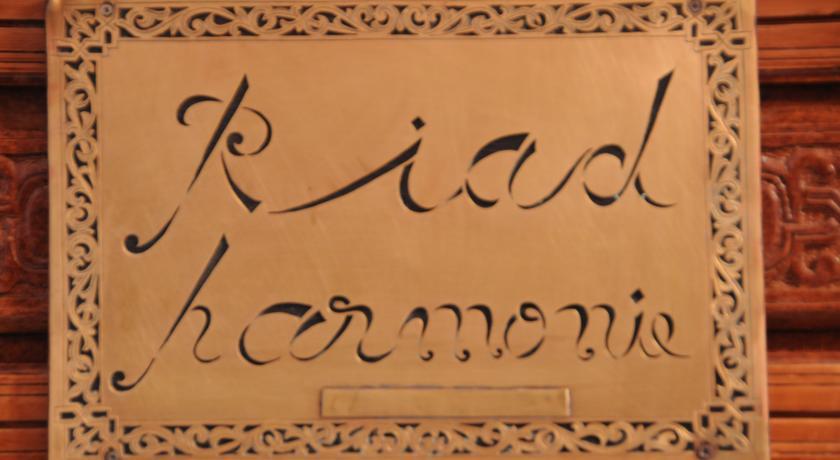 Riad
harmonie